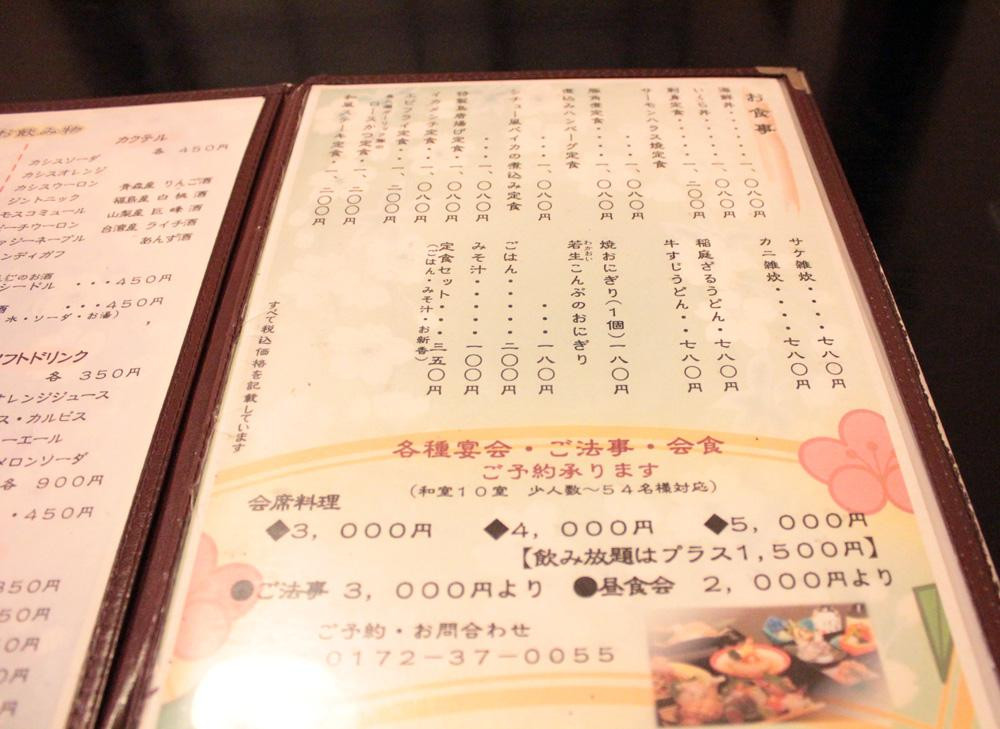 お食事
海鮮丼・・・・・一、〇八〇円
いくら丼・・・・一、〇八〇円
刺身定食・・・・一、二〇〇円
サーモンハラス焼定食
・・・一、〇八〇円
豚角煮定食・・・一、〇八〇円
煮込みハンバーグ定食
・・・一、〇八〇円
シチュー風バイカの煮込み定食
・・・一、〇八〇円
特製鳥唐揚げ定食
イカメンチ定食・・一、〇八〇円
エビフライ定食・・一、二〇〇円
ロースかつ定食・・一、二〇〇円
和風ステーキ定食・一、二〇〇円
サケ雑炊・・・・七八〇円
カニ雑炊・・・・七八〇円
稲庭ざるうどん・七八〇円
牛すじうどん・・七八〇円
焼おにぎり(1個)一八〇円
若生こんぶのおにぎり
わかおい
・・・・一八〇円
ごはん・・・・・二〇〇円
みそ汁・・・・・一〇〇円
定食セット・・・三五〇円
(ごはん・みそ汁・お新香)
すべて税込価格を記載しています
各種宴会・ご法事・会食
ご予約承ります
(和室10室 少人数〜54名様対応)
会席料理
◆3,000円 ◆4,000円 ◆5,000円
【飲み放題はプラス1,500円】
●ご法事 3,000円より ●昼食会 2,000円より
ご予約・お問合わせ
0172-37-0055
お飲み物
カクテル
各 450円
カシスソーダ
カシスオレンジ
カシスウーロン
ジントニック
モスコミュール
ーチウーロン
ァジーネーブル
ンディガフ
青森産 りんご酒
福島産 白桃酒
山梨産 巨峰酒
台湾産 ライチ酒
あんず酒
んじのお酒
シードル ・・・450円
酒 ・・・450円
水・ソーダ・お湯)
フトドリンク
各 350円
オレンジジュース
ス・カルピス
ーエール
メロンソーダ
各 900円
・450円
350円
50円
0円
円
円